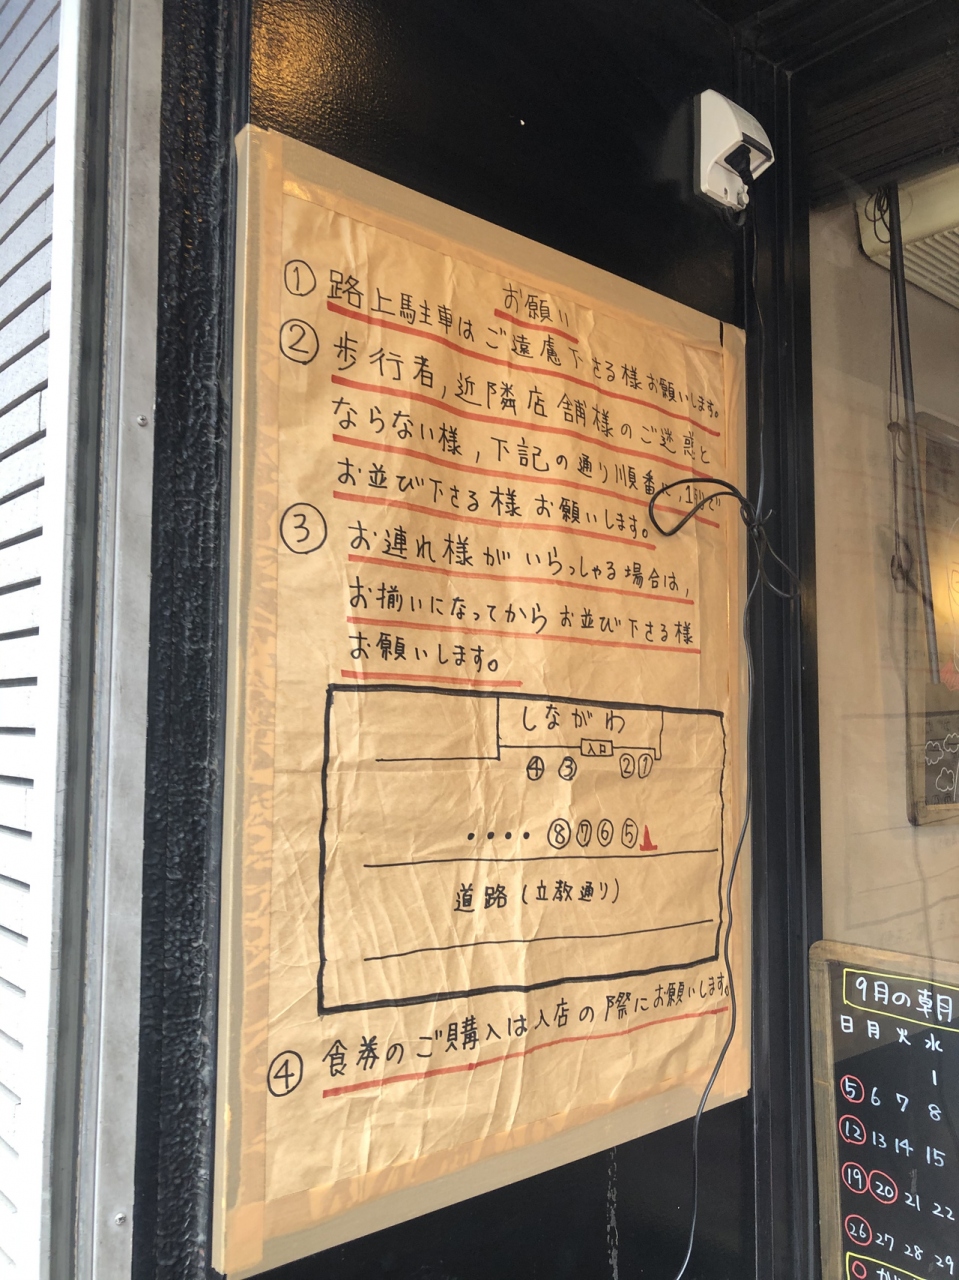 お願い
① 路上駐車はご遠慮下さる様お願いします。
② 歩行者,近隣店舗様のご迷惑と
ならない様,下記の通り順番に,1列で
お並び下さる様お願いします。
③ お連れ様がいらっしゃる場合は,
お揃いになってからお並び下さる様
お願いします。
しながわ
入口
④ ③ ② ①
・・・・⑧⑦⑥⑤
道路(立教通り)
④ 食券のご購入は入店の際にお願いします。
9月の朝
日 月 火 水
1
5 6 7 8
12 13 14 15
19 20 21 22
26 27 28 29